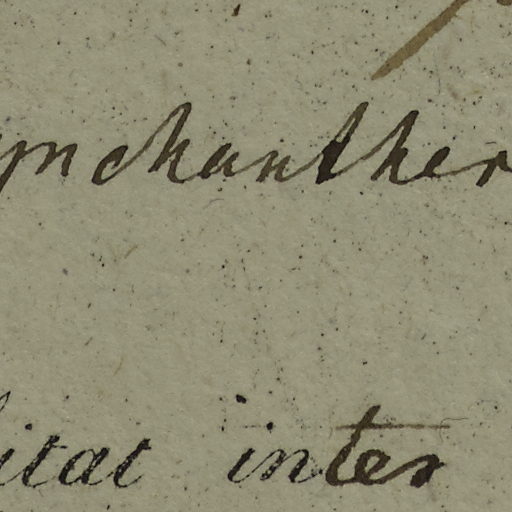 ynchanther
itat inter